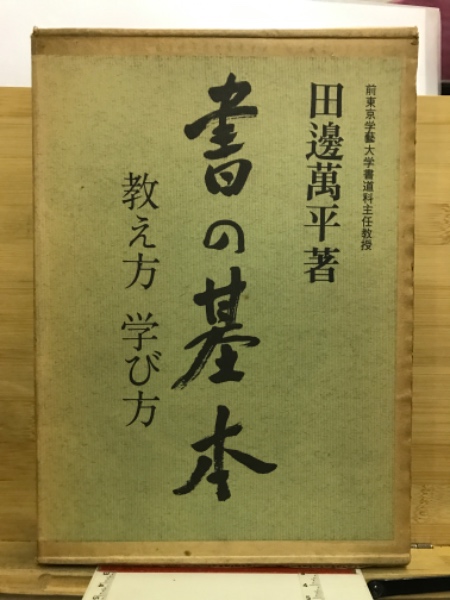 前東京学藝大学書道科主任教授
田邊萬平著
書の基本
教え方 学び方